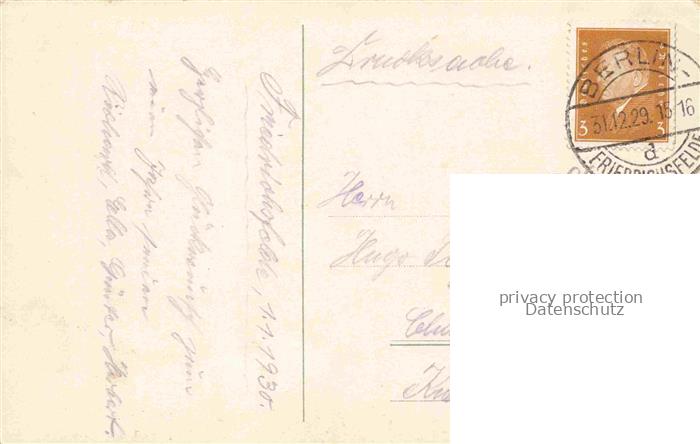 Friedrichsfelde, 1.1.1930.
Herzlichen Glückwunsch zum
neuen Jahre senden
Richard, Ella, Günter, Herbert.
Drucksache.
BERLIN-
31.12.29. 15-16
d
FRIEDRICHSFELDE
3 3
Herrn
Hugo
privacy protection
Datenschutz